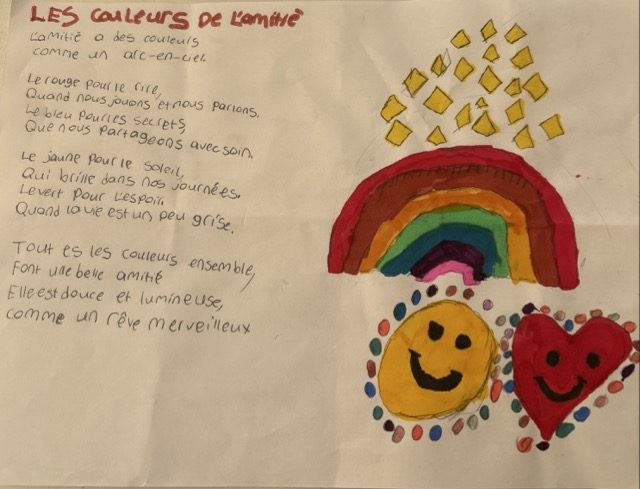 LES couleurs DE L'amitié
L'amitié a des couleurs
comme un arc-en-ciel.
Le rouge pour le rire,
Quand nous jouons et nous parlons.
Le bleu pour les secrets,
Que nous partageons avec soin.
Le jaune pour le soleil,
Qui brille dans nos journées.
Le vert Pour L'espoir.
Quand la vie est un peu grise.
Tout es les couleurs ensemble,
Font une belle amitié
Elle est douce et lumineuse,
comme un rêve merveilleux